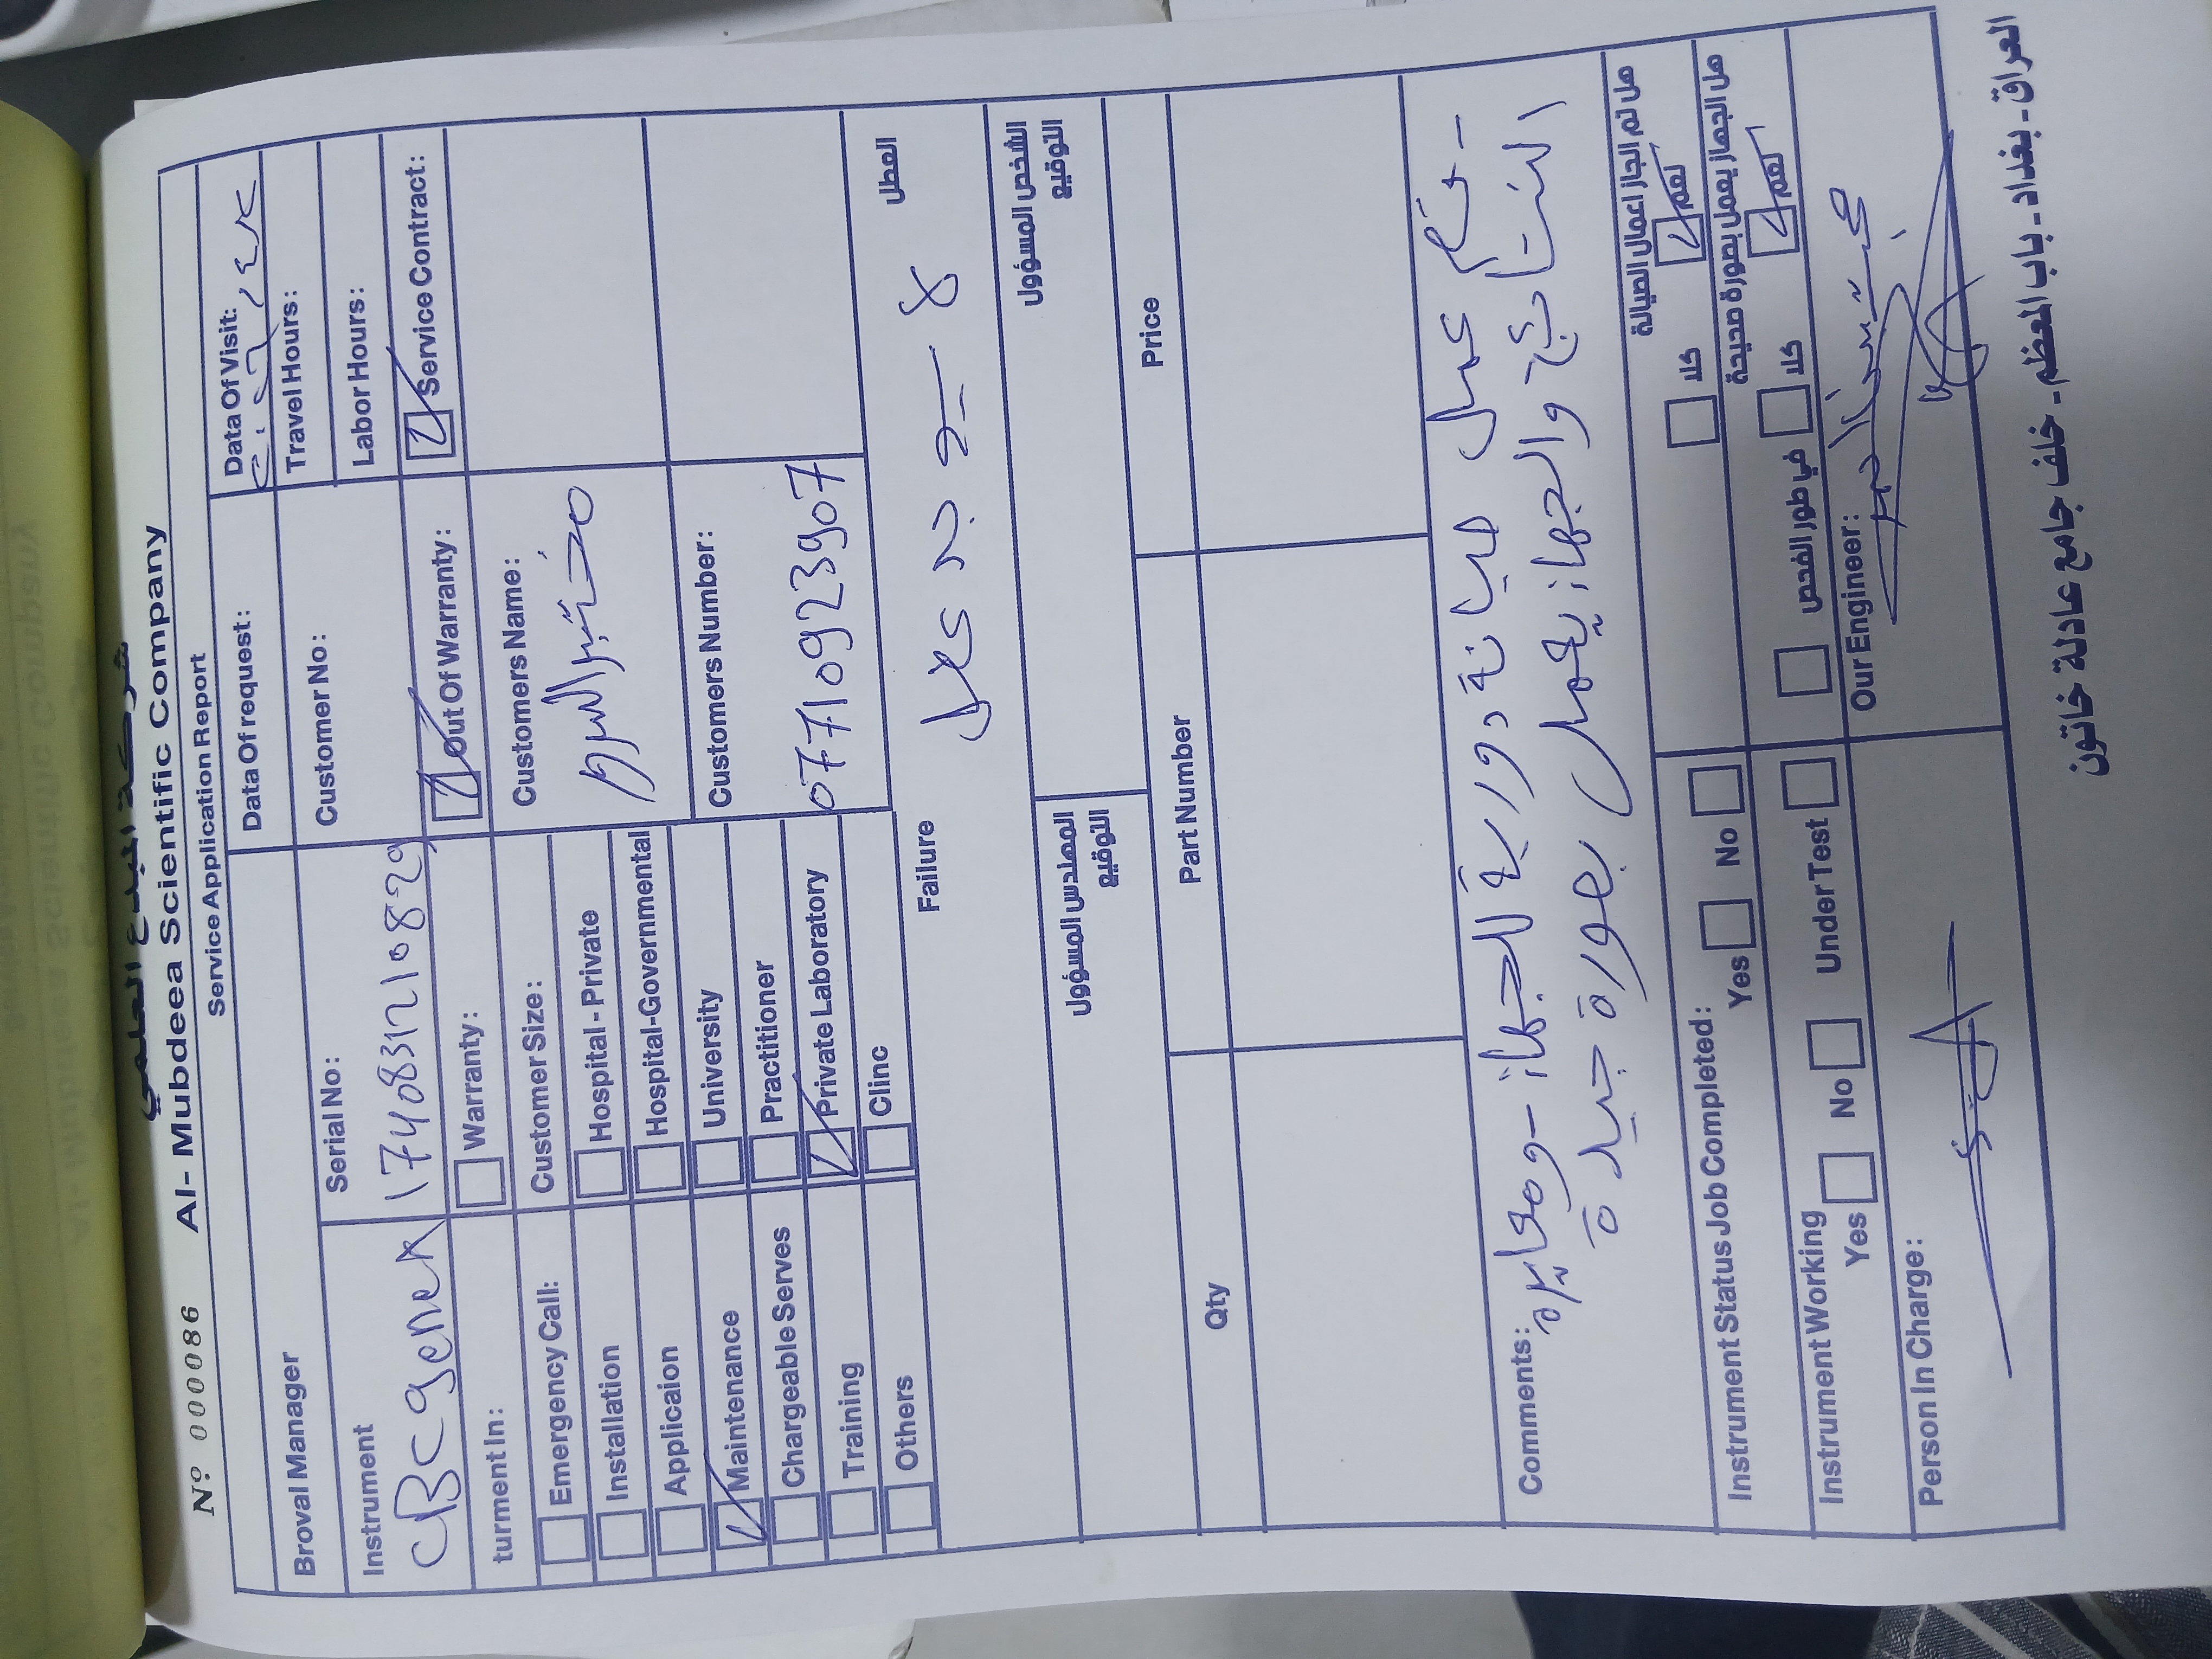 شركة المبدع العلمي
Nº 000086 Al- Mubdeea Scientific Company
Service Application Report
Data Of request: Data Of Visit:
Broval Manager Customer No: Travel Hours:
Labor Hours:
Instrument Serial No:
CBC genex 1740831210829
Warranty: Out Of Warranty: Service Contract:
turment In: Customer Size: Customers Name:
Emergency Call: Hospital - Private
مختبر
Installation Hospital-Governmental
Applicaion University Customers Number:
Maintenance Practitioner
07710923907
Chargeable Serves Private Laboratory
Training Clinc
Others
Failure العطل
المهندس المسؤول الشخص المسؤول
التوقيع التوقيع
Qty Part Number Price
Comments:
تم عمل صيانة دورية للجهاز - ومعايرة
النتائج والجهاز يعمل بصورة جيدة
Instrument Status Job Completed: هل تم انجاز اعمال الصيانة
Yes No كلا نعم
Instrument Working هل الجهاز يعمل بصورة صحيحة
Yes No Under Test في طور الفحص كلا نعم
Person In Charge: Our Engineer:
العراق - بغداد - باب المعظم - خلف جامع عادلة خاتون